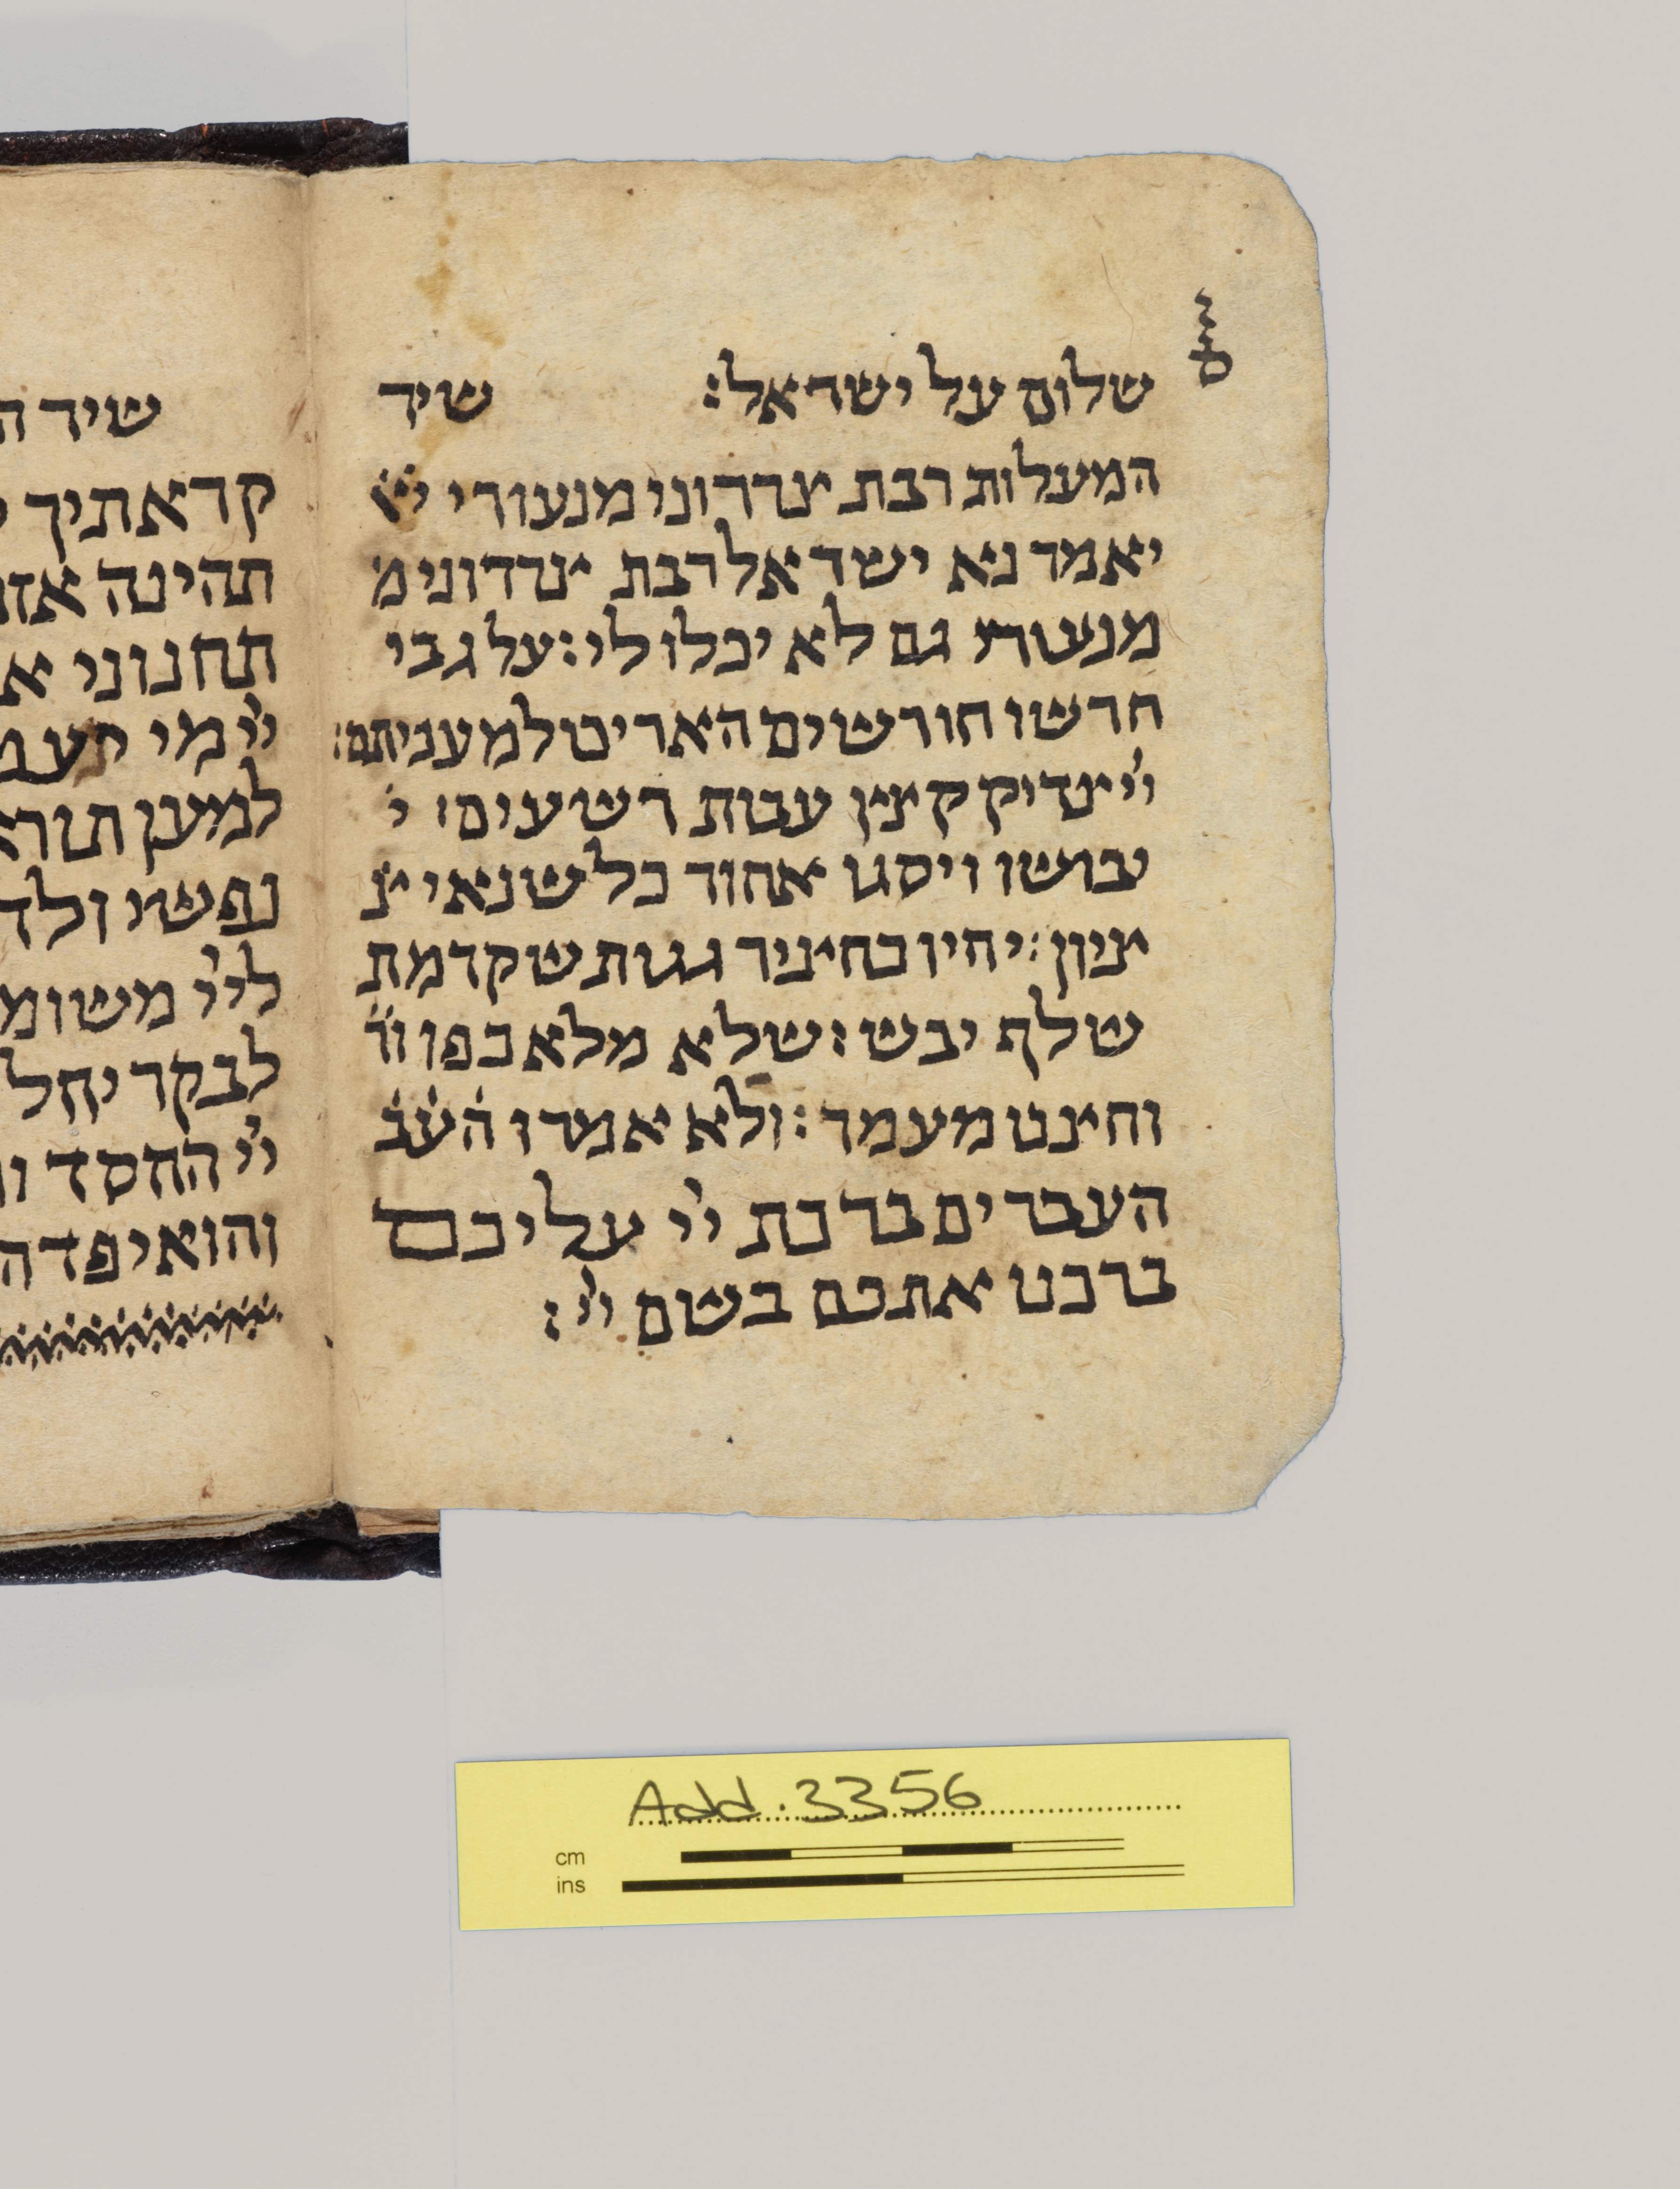 שלום על ישראל: שיר
המעלות רבת צררוני מנעורי י̇א̇
יאמר נא ישראל רבת צררוני מ̇
מנעורי גם לא יכלו לי: על גבי
חרשו חורשים האריכו למעניתם:
י̇י̇ צדיק קצץ עבות רשעים: י̇
יבושו ויסגו אחור כל שנאי צ̇
ציון: יהיו כחציר גגות שקדמת
שלף יבש: שלא מלא כפו
וחיצנו מעמר: ולא אמרו ה̇ע̇ב̇
העברים ברכת י̇י עליכם
ברכנו אתכם בשם י̇י:
שיר ה
קראתיך
תהינה אזנ
תחנוני א
י̇י מי יעמ
למען תורא
נפשי ולד
לי̇י משומ
לבקר יחל
י̇י החסד וה
והוא יפדה
Add. 3356
cm
ins